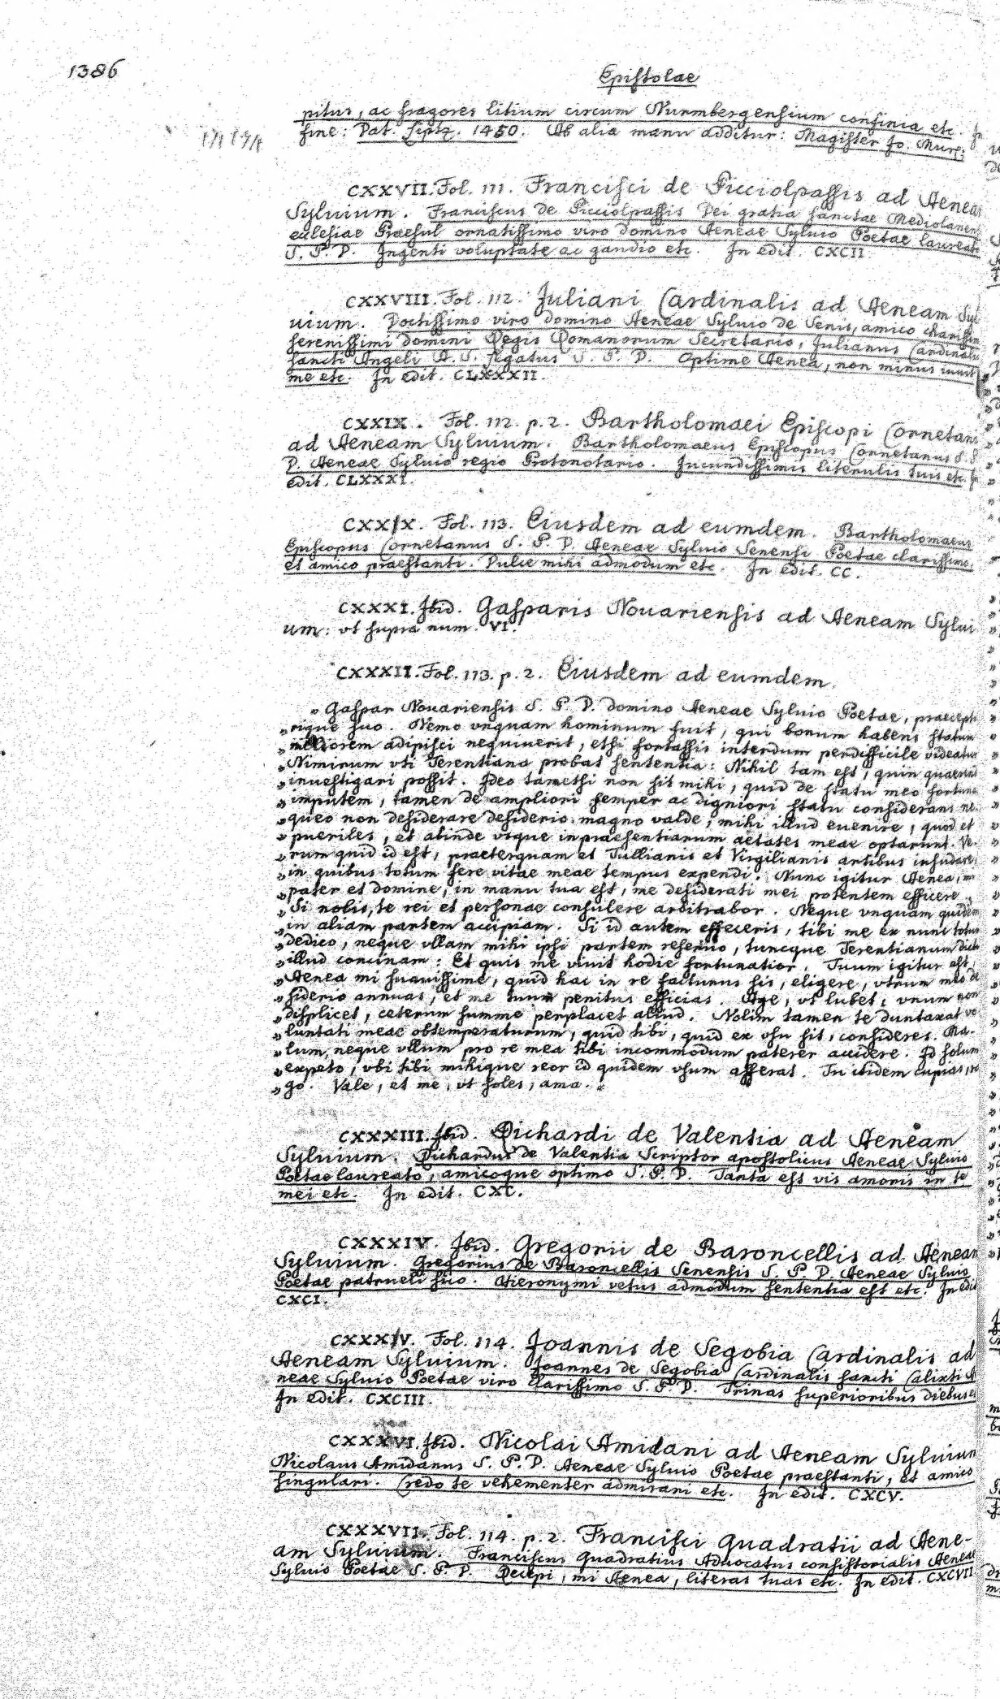 1386
Epistolae
pitur, ac fragores litium circum Nurmbergensium confinia etc. In
fine: Dat. Septz. 1450. Ab alia manu additur: Magister Jo. Mur:
CXXVII. Fol. 111. Francisci de Picciolpassis ad Aeneam
Sylvium. Franciscus de Picciolpassis Dei gratia sanctae Mediolanens
ecclesiae Praesul ornatissimo viro domino Aeneae Sylvio Poetae laureato
S. P. D. Ingenti voluptate ac gaudio etc. In edit. CXCII
CXXVIII. Fol. 112. Juliani Cardinalis ad Aeneam Syl
uium. Doctissimo viro domino Aeneae Sylvio de Senis, amico charissim
serenissimi domini Regis Romanorum Secretario, Julianus Cardinalis
sancti Angeli A. S. Legatus S. P. D. Optime Aenea, non minus iucun
me etc. In edit. CLXXXII.
CXXIX. Fol. 112. p. 2. Bartholomaei Episcopi Cornetani
ad Aeneam Sylvium. Bartholomaeus Episcopus Cornetanus S. P.
D. Aeneae Sylvio regio Protonotario. Jucundissimis literulis tuis etc. In
edit. CLXXXI.
CXXIX. Fol. 113. Eiusdem ad eumdem. Bartholomaeus
Episcopus Cornetanus S. P. D. Aeneae Sylvio Senensi Poetae clarissimo
et amico praestanti. Dulce mihi admodum etc. In edit. CC.
CXXXI. Ibid. Gasparis Nouariensis ad Aeneam Sylui
um: vt supra num. VI.
CXXXII. Fol. 113. p. 2. Eiusdem ad eumdem.
„ Gaspar Nouariensis S. P. D. domino Aeneae Sylvio Poetae, praecipu
„ oique suo. Nemo vnquam hominum fuit, qui bonum habens statum
„ meliorem adipisci nequiuerit, etsi fortassis interdum perdifficile videatur
„ Nimirum vti Terentiana probat sententia: Nihil tam est, quin quaerendo
„ inuestigari possit. Ideo tametsi non sit mihi, quid de statu meo fortunae
„ imputem, tamen de ampliori semper ac digniori statu considerans ne-
„ queo non desiderare desiderio magno valde, mihi illud euenire, quod et
„ pueriles, et abinde vsque inpraesentiarum aetates meae optarunt. Ve-
„ rum quid id est, praeterquam et Tullianis et Virgilianis artibus insudare,
„ in quibus totum fere vitae meae tempus expendi. Nunc igitur Aenea, mi
„ pater et domine, in manu tua est, me desiderati mei potentem efficere.
„ Si nolis, te rei et personae consulere arbitrabor. Neque vnquam quidem
„ in aliam partem accipiam. Si id autem effeceris, tibi me ex nunc totum
„ dedico, neque vllam mihi ipsi partem reseruo, tuncque Terentianum dictum
„ illud concinam: Et quis me viuit hodie fortunatior. Tuum igitur est,
„ Aenea mi suauissime, quid hac in re facturus sis, eligere, vtrum meo de
„ siderio annuas, et me tuum penitus efficias. Age, vt lubet, vnum non
„ displicet, ceterum summe perplacet aliud. Nolim tamen te duntaxat vo
„ luntati meae obtemperaturum, quid tibi, quid ex vsu sit, consideres. Ma-
„ lum, neque vllum pro re mea tibi incommodum paterer accidere. Id solum
„ expeto, vbi tibi mihique reor id quidem vsum afferat. Tu itidem cupias, ro
„ go. Vale, et me, vt soles, ama. „
CXXXIII. Ibid. Richardi de Valentia ad Aeneam
Sylvium. Richardus de Valentia Scriptor apostolicus Aeneae Sylvio
Poetae laureato, amicoque optimo S. P. D. Tanta est vis amoris in te
mei etc. In edit. CXC.
CXXXIV. Ibid. Gregorii de Baroncellis ad Aeneam
Sylvium. Gregorius de Baroncellis Senensis S. P. D. Aeneae Sylvio
Poetae patrueli suo. Hieronymi vetus admodum sententia est etc. In edit
CXCI.
CXXXIV. Fol. 114. Joannis de Segobia Cardinalis ad
Aeneam Sylvium. Joannes de Segobia Cardinalis sancti Calixti Ae
neae Sylvio Poetae viro clarissimo S. P. D. Trinas superioribus diebus etc
In edit. CXCIII.
CXXXVI. Ibid. Nicolai Amidani ad Aeneam Sylvium
Nicolaus Amidanus S. P. D. Aeneae Sylvio Poetae praestanti, et amico
singulari. Credo te vehementer admirari etc. In edit. CXCV.
CXXXVII. Fol. 114. p. 2. Francisci Quadratii ad Aene-
am Sylvium. Franciscus Quadratius Aduocatus consistorialis Aeneae
Sylvio Poetae S. P. D. Recepi, mi Aenea, literas tuas etc. In edit. CXCVII